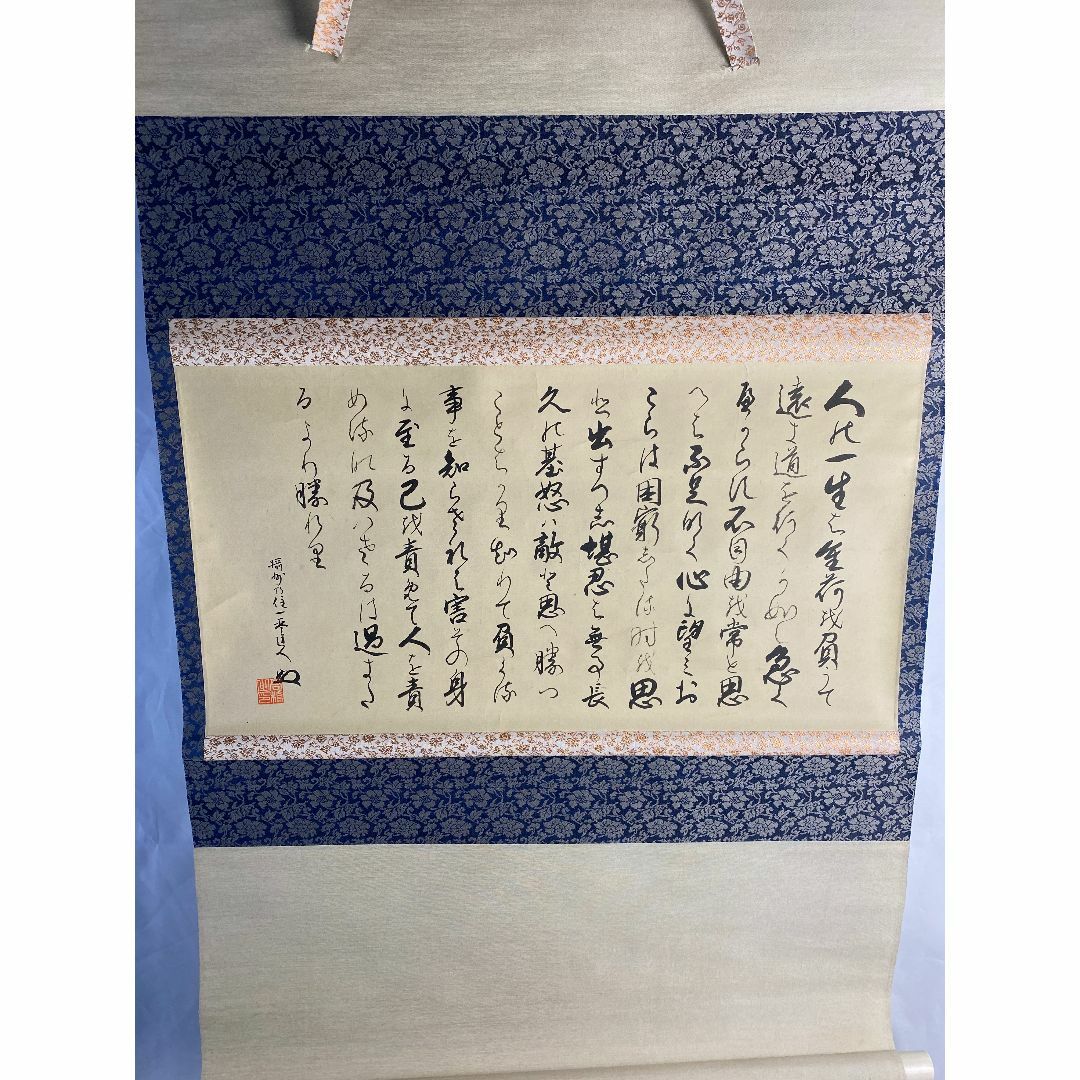 人の一生は重荷を負うて
遠き道を行くが如し急く
へからす不自由を常と思
へは不足なく心に望みお
こらは困窮したる時を思
ひ出すへし堪忍は無事長
久の基怒ハ敵と思へ勝つ
ことはかり知りて負くる
事を知らされは害その身
に至る己を責めて人を責
めるな及ハさるは過きた
るより勝れり